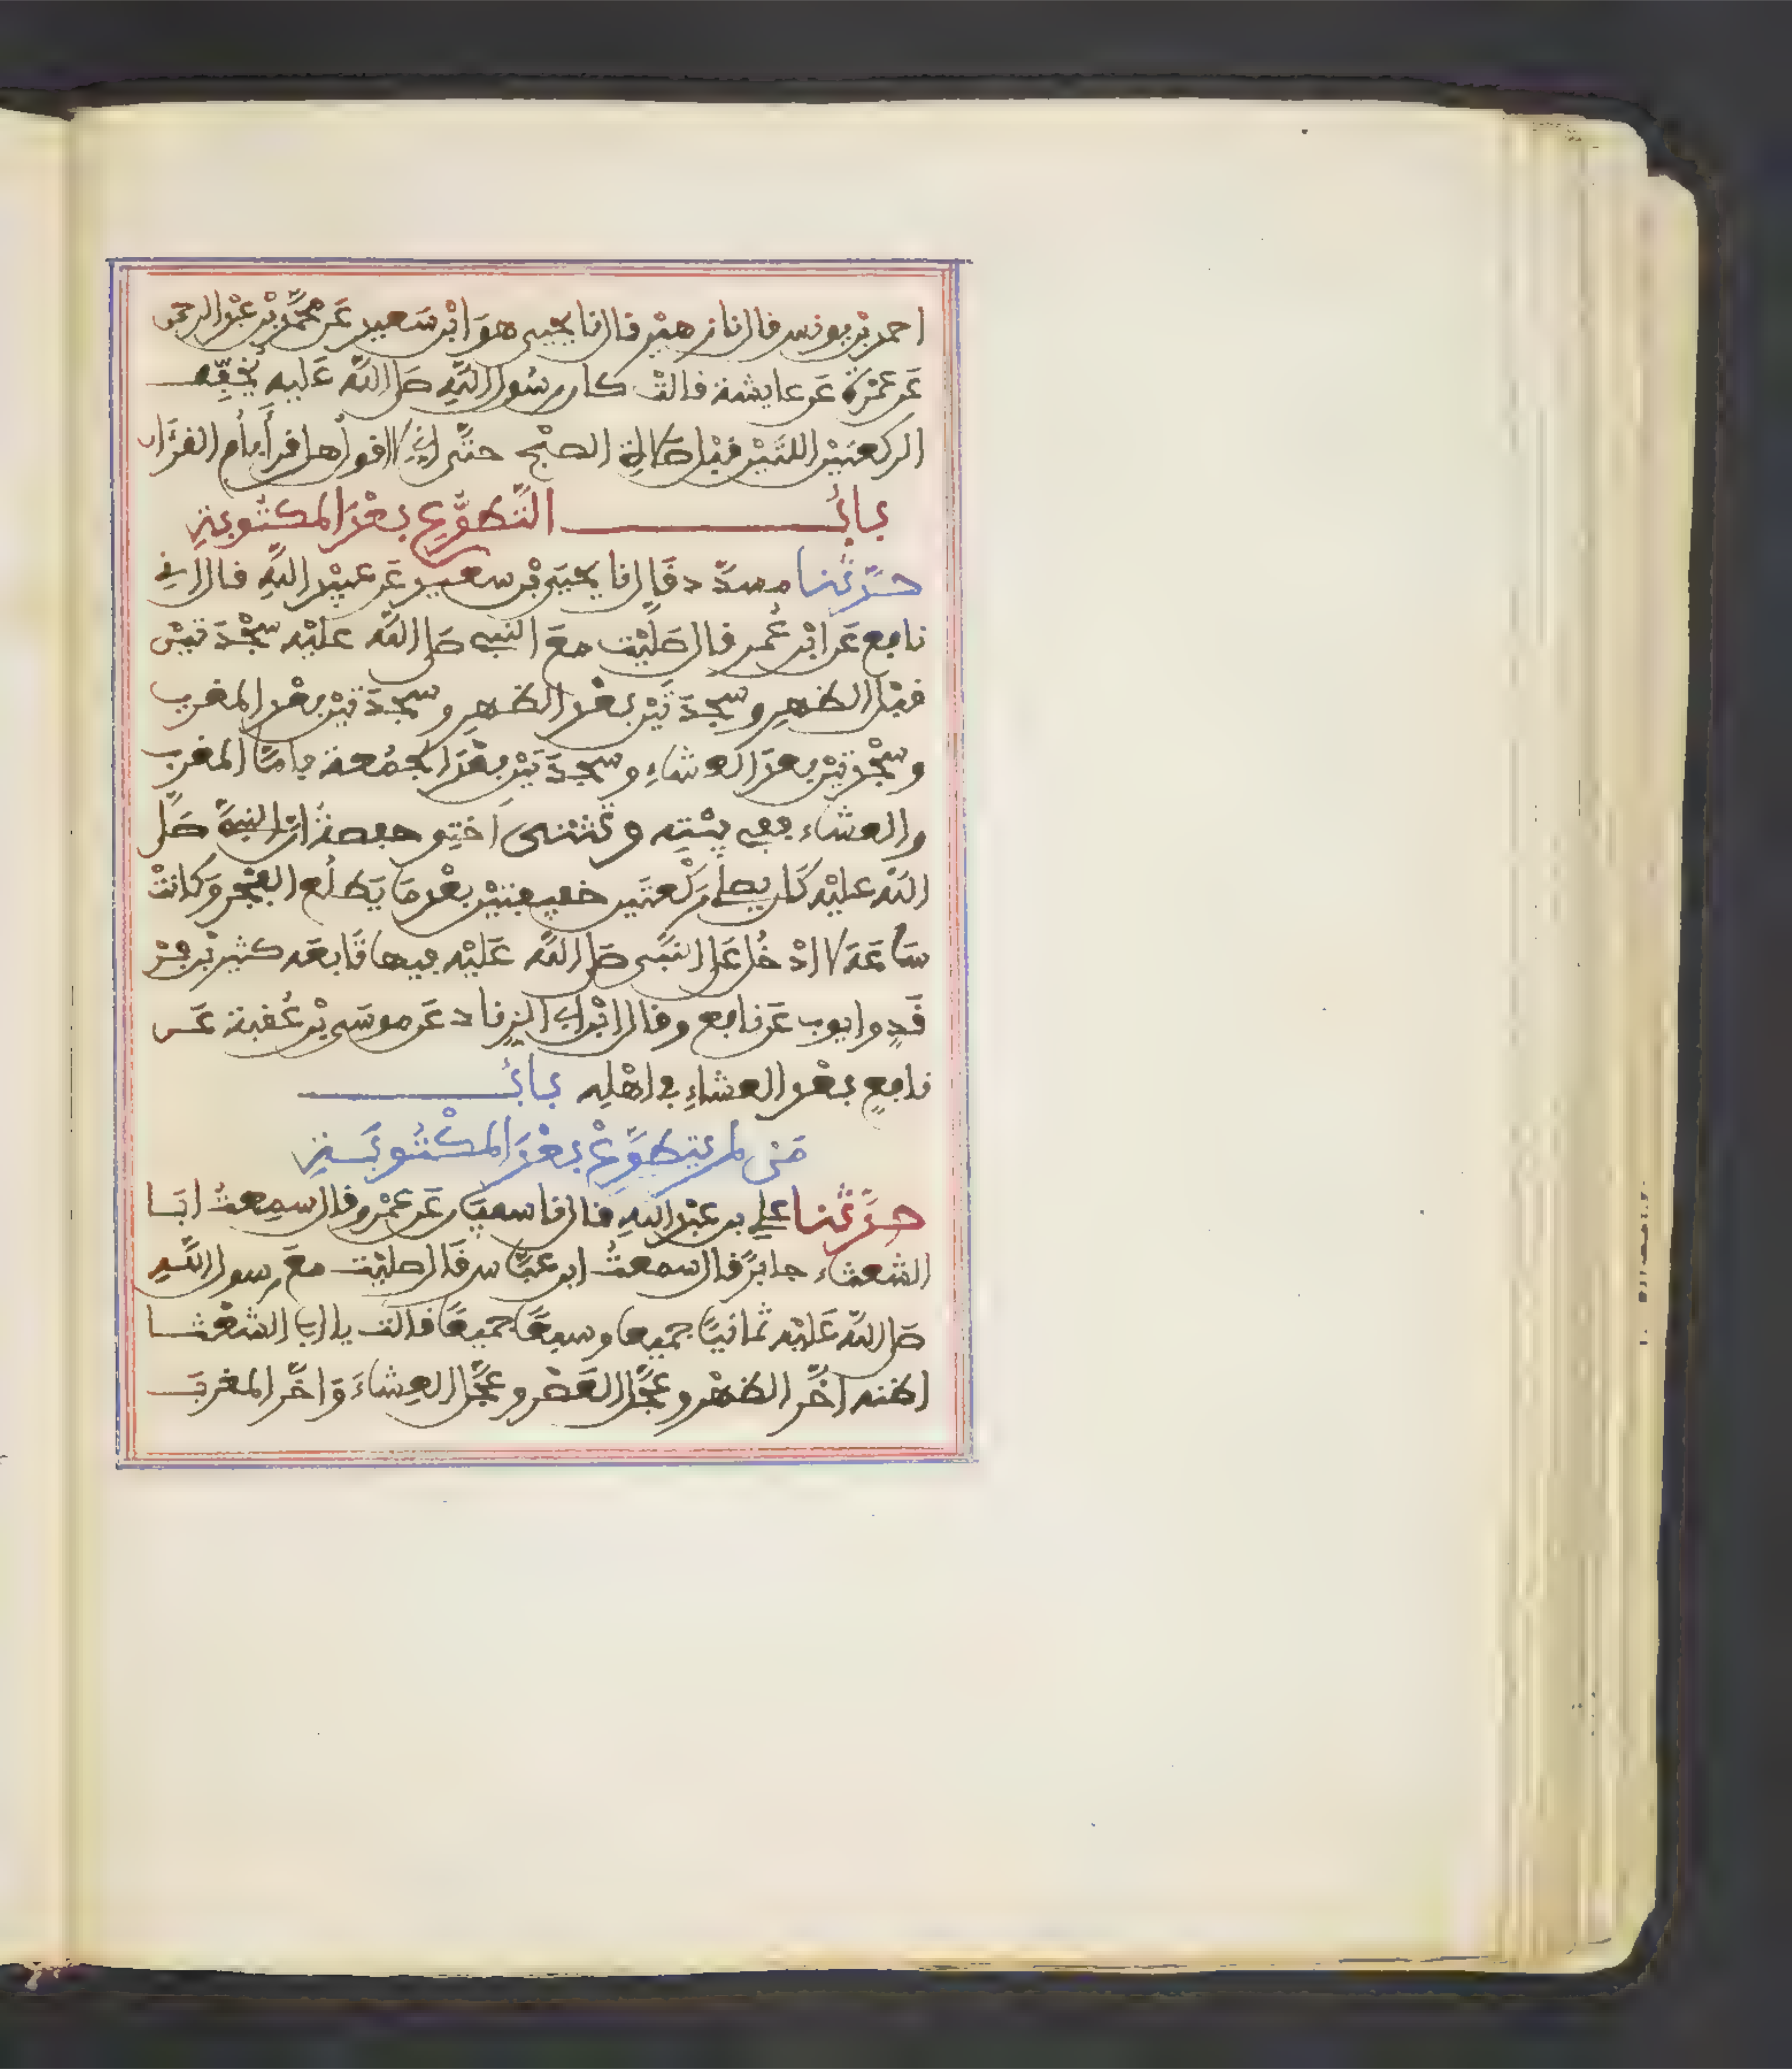 احمد بْن يونس فال نا زهيْر فال نا يحيى هوَ ابْن سَعيد عَن محمَّد بْن عبْد الرحمن
عَن عمْرَة عَن عايشة فالتْ كان رسُول اللهِ صَلى اللهُ عَليه يُخَفِّف
الركعتيْن اللتيْن فبْل صَلاة الصبْح حتَّى إنِّي لافول هل فرأ بأم الفرْءان
بابُ التَّطوُّعِ بعْدَ المكتُوبةِ
حدَّثنا مسدَّد فَال نا يحيَى بْن سعيد عَن عبيْد اللهِ فال اني
نافِع عَن ابْن عُمر فال صَلَّيْت معَ النبي صَلى اللهُ عليْه سجْدَتيْن
فبْل الظهر وسجدَتيْن بعْد الظهر وسجدَتيْن بعْد المغرب
وسجْدتيْن بعدَ العشاءِ وسجدَتيْن بعْدَ الجمُعة فامَّا المغرب
والعشاء ففي بيْتِه وحدثتنى اختِي حفصةُ انَّ النبيَّ صَلى
اللهُ عليْه كَان يصلي رَكْعتَين خفيفتيْن بعْد مَا يَطلُع الفجْر وَكانتْ
سَاعَةَ لا ادْخُل عَلى النبَّي صَلى اللهُ عَليْه فيها تَابعَه كثير بْن فرْ
فَدٍ وايوب عَن نافِع وفال ابْن ابي الزناد عَن موسَى بْن عُفبة عَن
نافِعٍ بعْد العشاءِ في اهْلِه بابُ
مَن لم يتطوَّعْ بعْدَ المكْتُوبَةِ
حدَّثنا علي بن عبْد اللهِ فال نا سفيَان عَن عمْرو فال سمِعتُ ابَا
الشعثاء جابرًا فال سمعتُ ابن عبَّاس فَال صليْت معَ رسول اللهِ
صَلى اللهُ عَليْه ثمانيًا جميعا وسبعًا جميعًا فلت يا ابا الشعْثا
اظنه اخَّر الظهْر وعجَّل العَصْر وعجَّل العِشاءَ وَاخَّر المغربَ